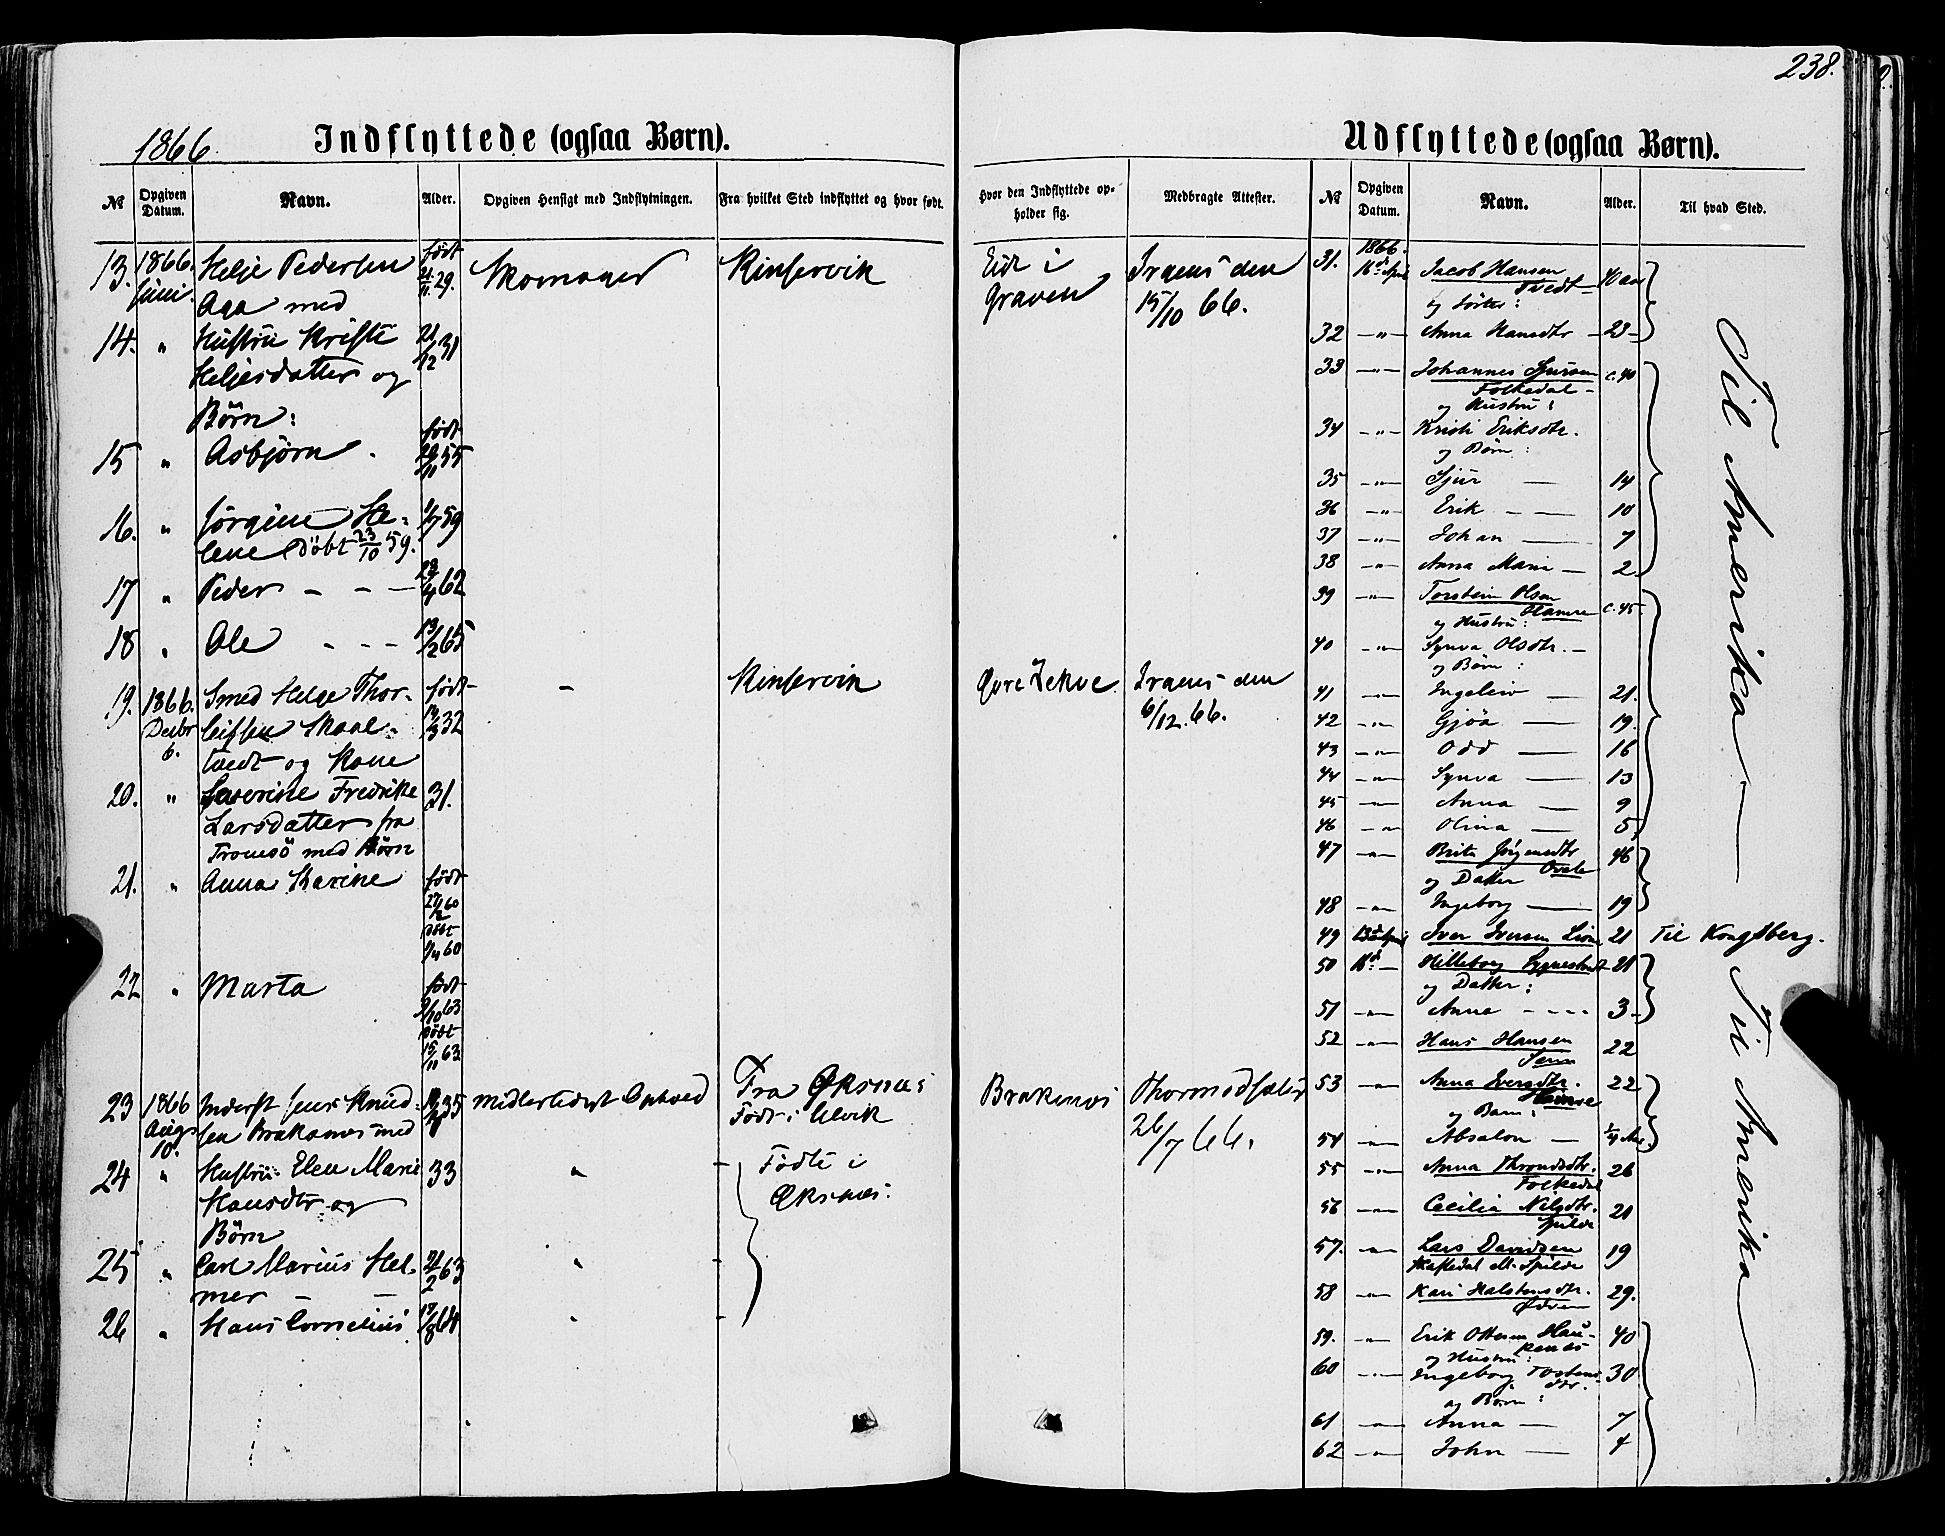 238.
1866. Indflyttede (ogsaa Børn).
Udflyttede (ogsaa Børn).
No Opgiven Datum. Navn. Alder. Opgiven Hensigt med Indflytningen. Fra hvilket Sted indflyttet og hvor født.
Hvor den Indflyttede opholder sig. Medbragte Attester. No Opgiven Datum. Navn. Alder. Til hvad Sted.
13. 1866. Helje Pedersen født Skomager Kinservik Eide i
Juni. Aga med 21/11 29. Graven 15/10 66.
14. " Hustrü Kristi 21/12 31
Heljesdatter og
Børn:
15 " Asbjørn født 29/11 55
16. " Jørgine He- 1/7 59
lene Døbt 23/10 59.
17 " Peder - - - 28/4 62
18 " Ole - - - 13/2 65
19. 1866. Smed Helge Thor- født - Kinservik Øvre Lekve
Decbr leifsen Skaal- 32 6/12. 66.
6. tvedt og Kone
20. " Severine Fredrikke 31.
Larsdatter fra
Tromsö med Børn
21. " Anna Karine født
27/2 60
Døbt
1/4 60
22 " Marta født
3/10 63
Døbt
15/11 63
23 1866 Inderst Jens Knud- 35 Midlertidigt Ophold Fra Øksnes Brakenes
Augs sen Brakenes med Født i Ulvik 26/7 66.
10.
24 " Hustrü Elen Marie 33 " Fødte i
Hansdtr og Øksnes.
Børn
25 " Carl Marius Hel- 21/2 63 "
mer - -
26 " Hans Cornelius 64 "
31. 1866. 16d April Jacob Hansen
Tvedt
og Søster:
32 -"- Anna Hansdtr - 23-
33 -"- Johannes Sjursen c. 40
Folkedal
og Hustru:
34 -"- Kristi Eriksdtr.
og Børn:
35 -"- Sjur - 14
36 -"- Erik - - 10
37 -"- Johan - 7
38 -"- Anna Maria - 2
39 -"- Torstein Olsen c. 45
Hamre
og Hustru:
40 -"- Synva Olsdtr. -
og Børn:
41 -"- Ingeleiv - 21.
42 -"- Gjøa - 19.
43 -"- Odd - 16
44 -"- Synva - 13
45 -"- Anna - 9
46 -"- Olina - 5
47 -"- Brita Jørgensdtr 46
og Datter
48 -"- Ingeborg - 19
49 13d April Iver Iversen 21 Til Kongsberg.
50 16d - Hilleborg 21
og Datter:
51 -"- Anna - - - - 3-
52 -"- Hans Hansen 22
53 -"- Anna Iversdtr. 22
og Barn:
54 -"- Absalon - 1/4
55 -"- Anna Throndsdtr. 26
Folkedal
56 -"- Cecilia Nilsdtr. 21
Spilde
57. -"- Lars Davidsen 19
Spilde
58 -"- Kari Halstensdtr. 29.
59. -"- Erik Ottesen Hau- 40
kenes
og Hustru:
60 -"- Ingeborg Tostens- 30
dtr.
og Børn:
61 -"- Anna - 7
62 -"- John - 4
Til Amerika
Til Amerika